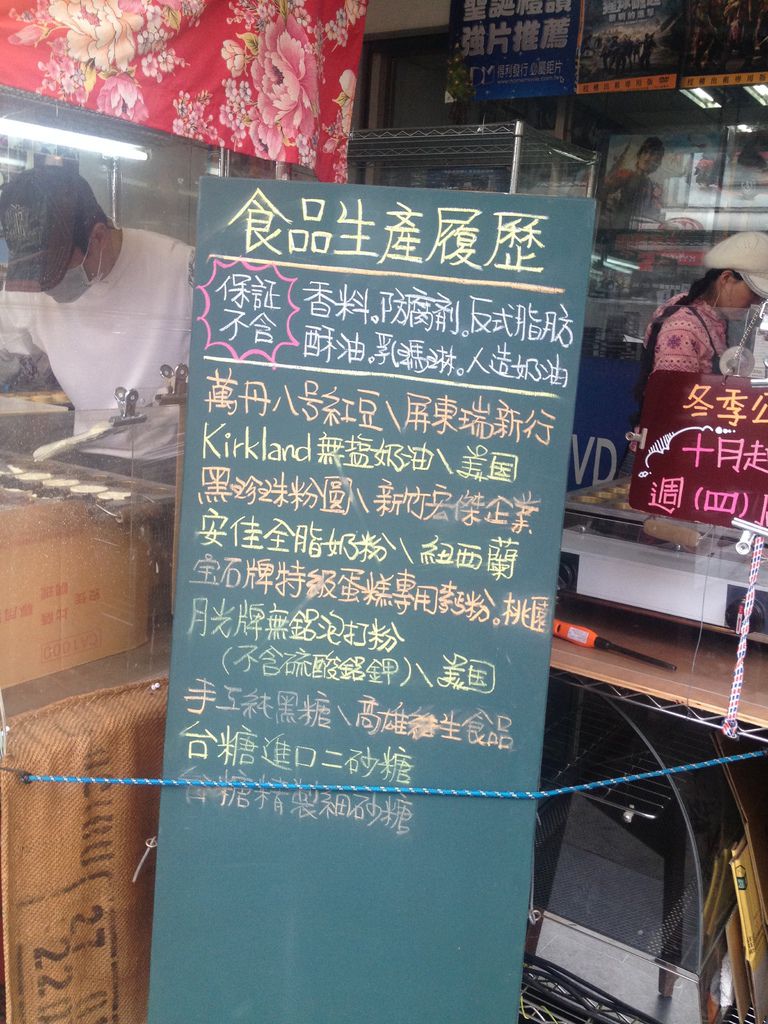 聖誕禮讚
強片推薦
得利發行 必屬鉅片
食品生產履歷
保証
不含
香料。防腐劑。反式脂肪
酥油。乳瑪琳。人造奶油
萬丹八号紅豆\屏東瑞新行
Kirkland無盐奶油\美国
黑珍珠粉圓\新竹宏傑企業
安佳全脂奶粉\紐西蘭
宝石牌特級蛋糕專用麥粉。桃園
月光牌無鋁泡打粉
(不含硫酸鋁鉀)\美国
手工純黑糖\高雄生食品
台糖進口二砂糖
台糖精製細砂糖
冬季公
十月起
週(四)
VD
27
220